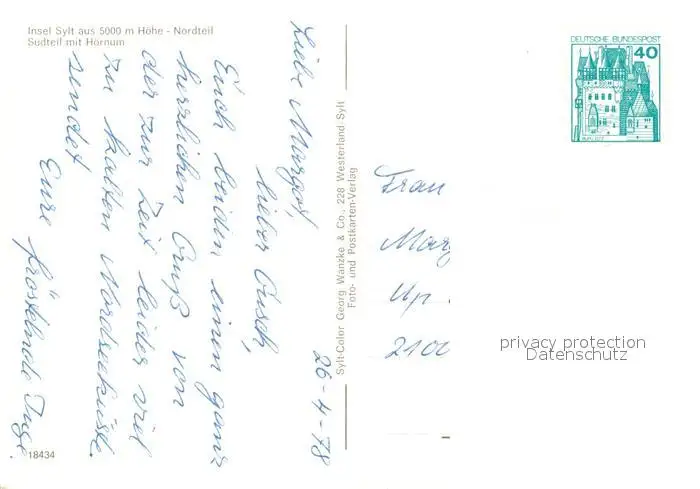 Insel Sylt aus 5000 m Höhe - Nordteil
Südteil mit Hörnum
26-4-78
Liebe Margot,
lieber
Euch beiden einen ganz
herzlichen Gruß von
der zur Zeit leider viel
zu kalten Nordseeküste.
sendet
Eure fröstelnde Inge.
18434
Sylt-Color Georg Wanzke & Co., 228 Westerland Sylt
Foto- und Postkarten-Verlag
DEUTSCHE BUNDESPOST
40
BURG ELTZ
Frau
Marg
Up
2100
privacy protection
Datenschutz